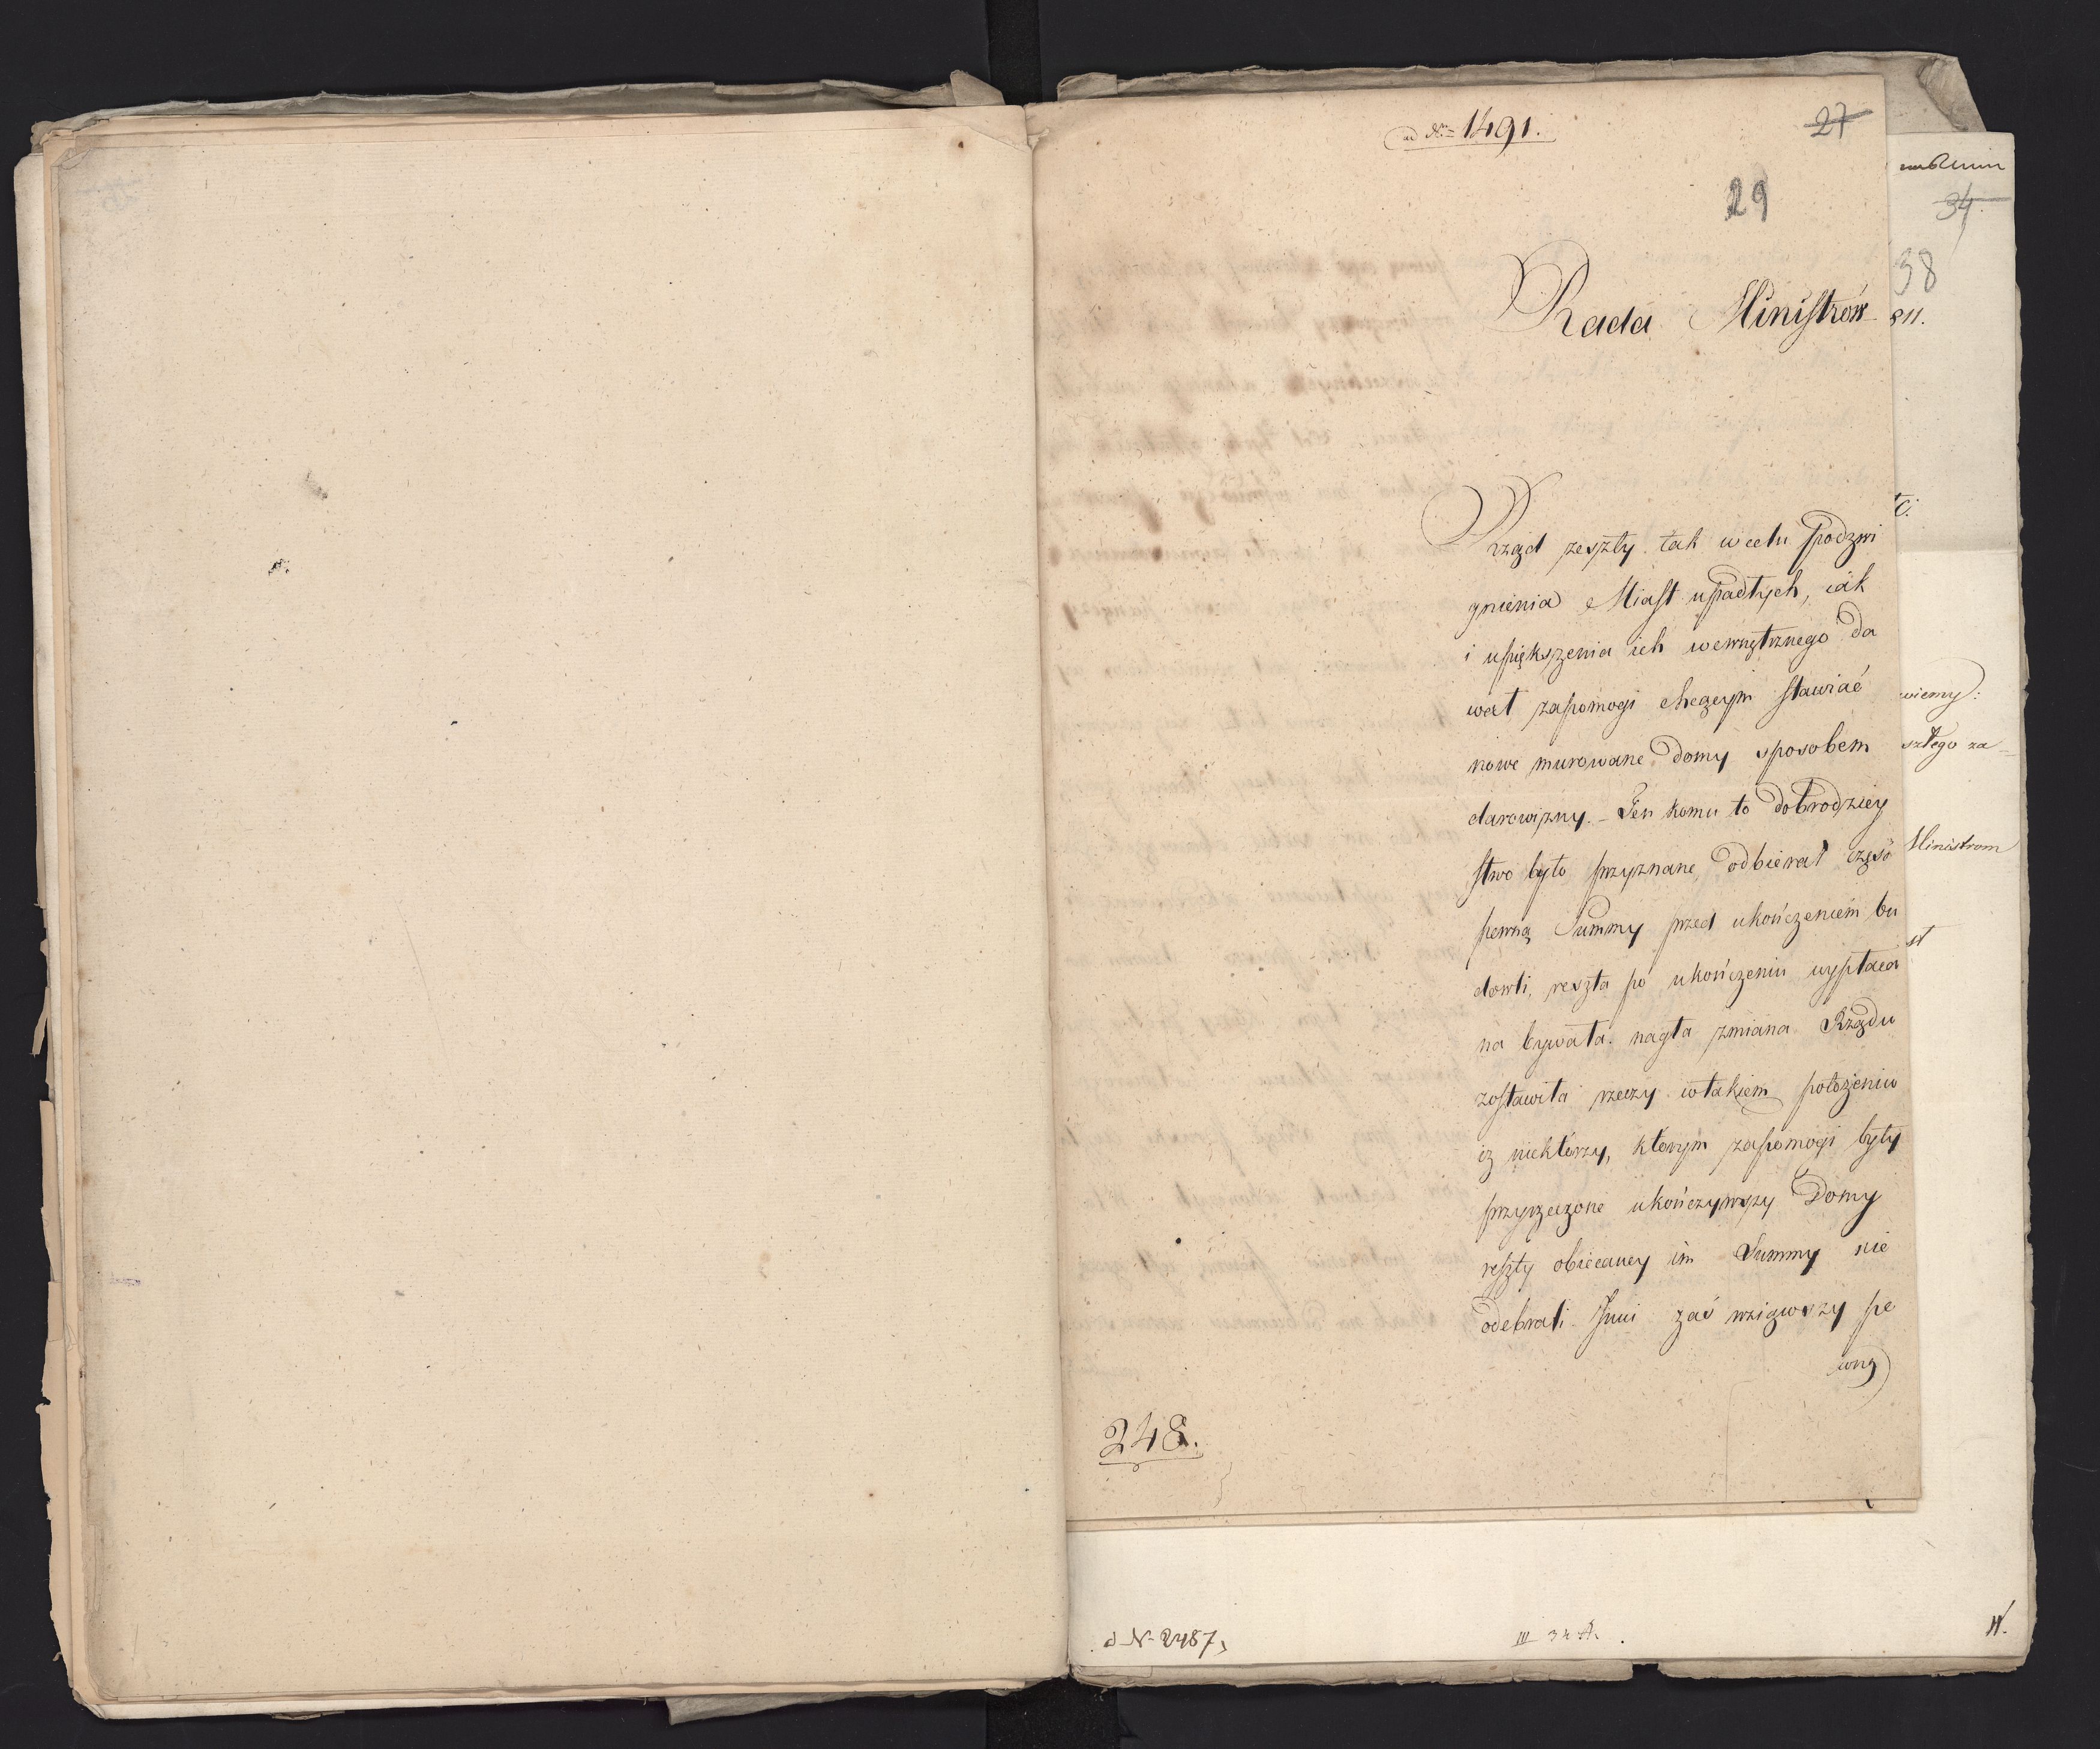 ad Nrm 1491.
27
29
Rada Ministrow
Rząd zeszły tak w celu podzwi
gnienia Miast upadłych, iak
i upiększenia ich wewnętrznego da
wał zapomogi chcącym stawiać
nowe murowane Domy sposobem
darowizny. – Ten komu to Dobrodziey
stwo było przyznane, odbierał część
pewną Summy przed ukończeniem bu
dowli, reszta po ukończeniu wypłaca
na bywała. nagła zmiana Rządu
zostawiła rzeczy w takiem położeniu
iż niektórzy, którym zapomogi były
przyrzeczone ukończywszy Domy
reszty obiecaney im Summy nie
odebrali. Inni zaś wziąwszy pe
wną
248.
34
38
811.
wiemy:
szłego za-
Ministrom
st
d N- 2487,
III 34 A.